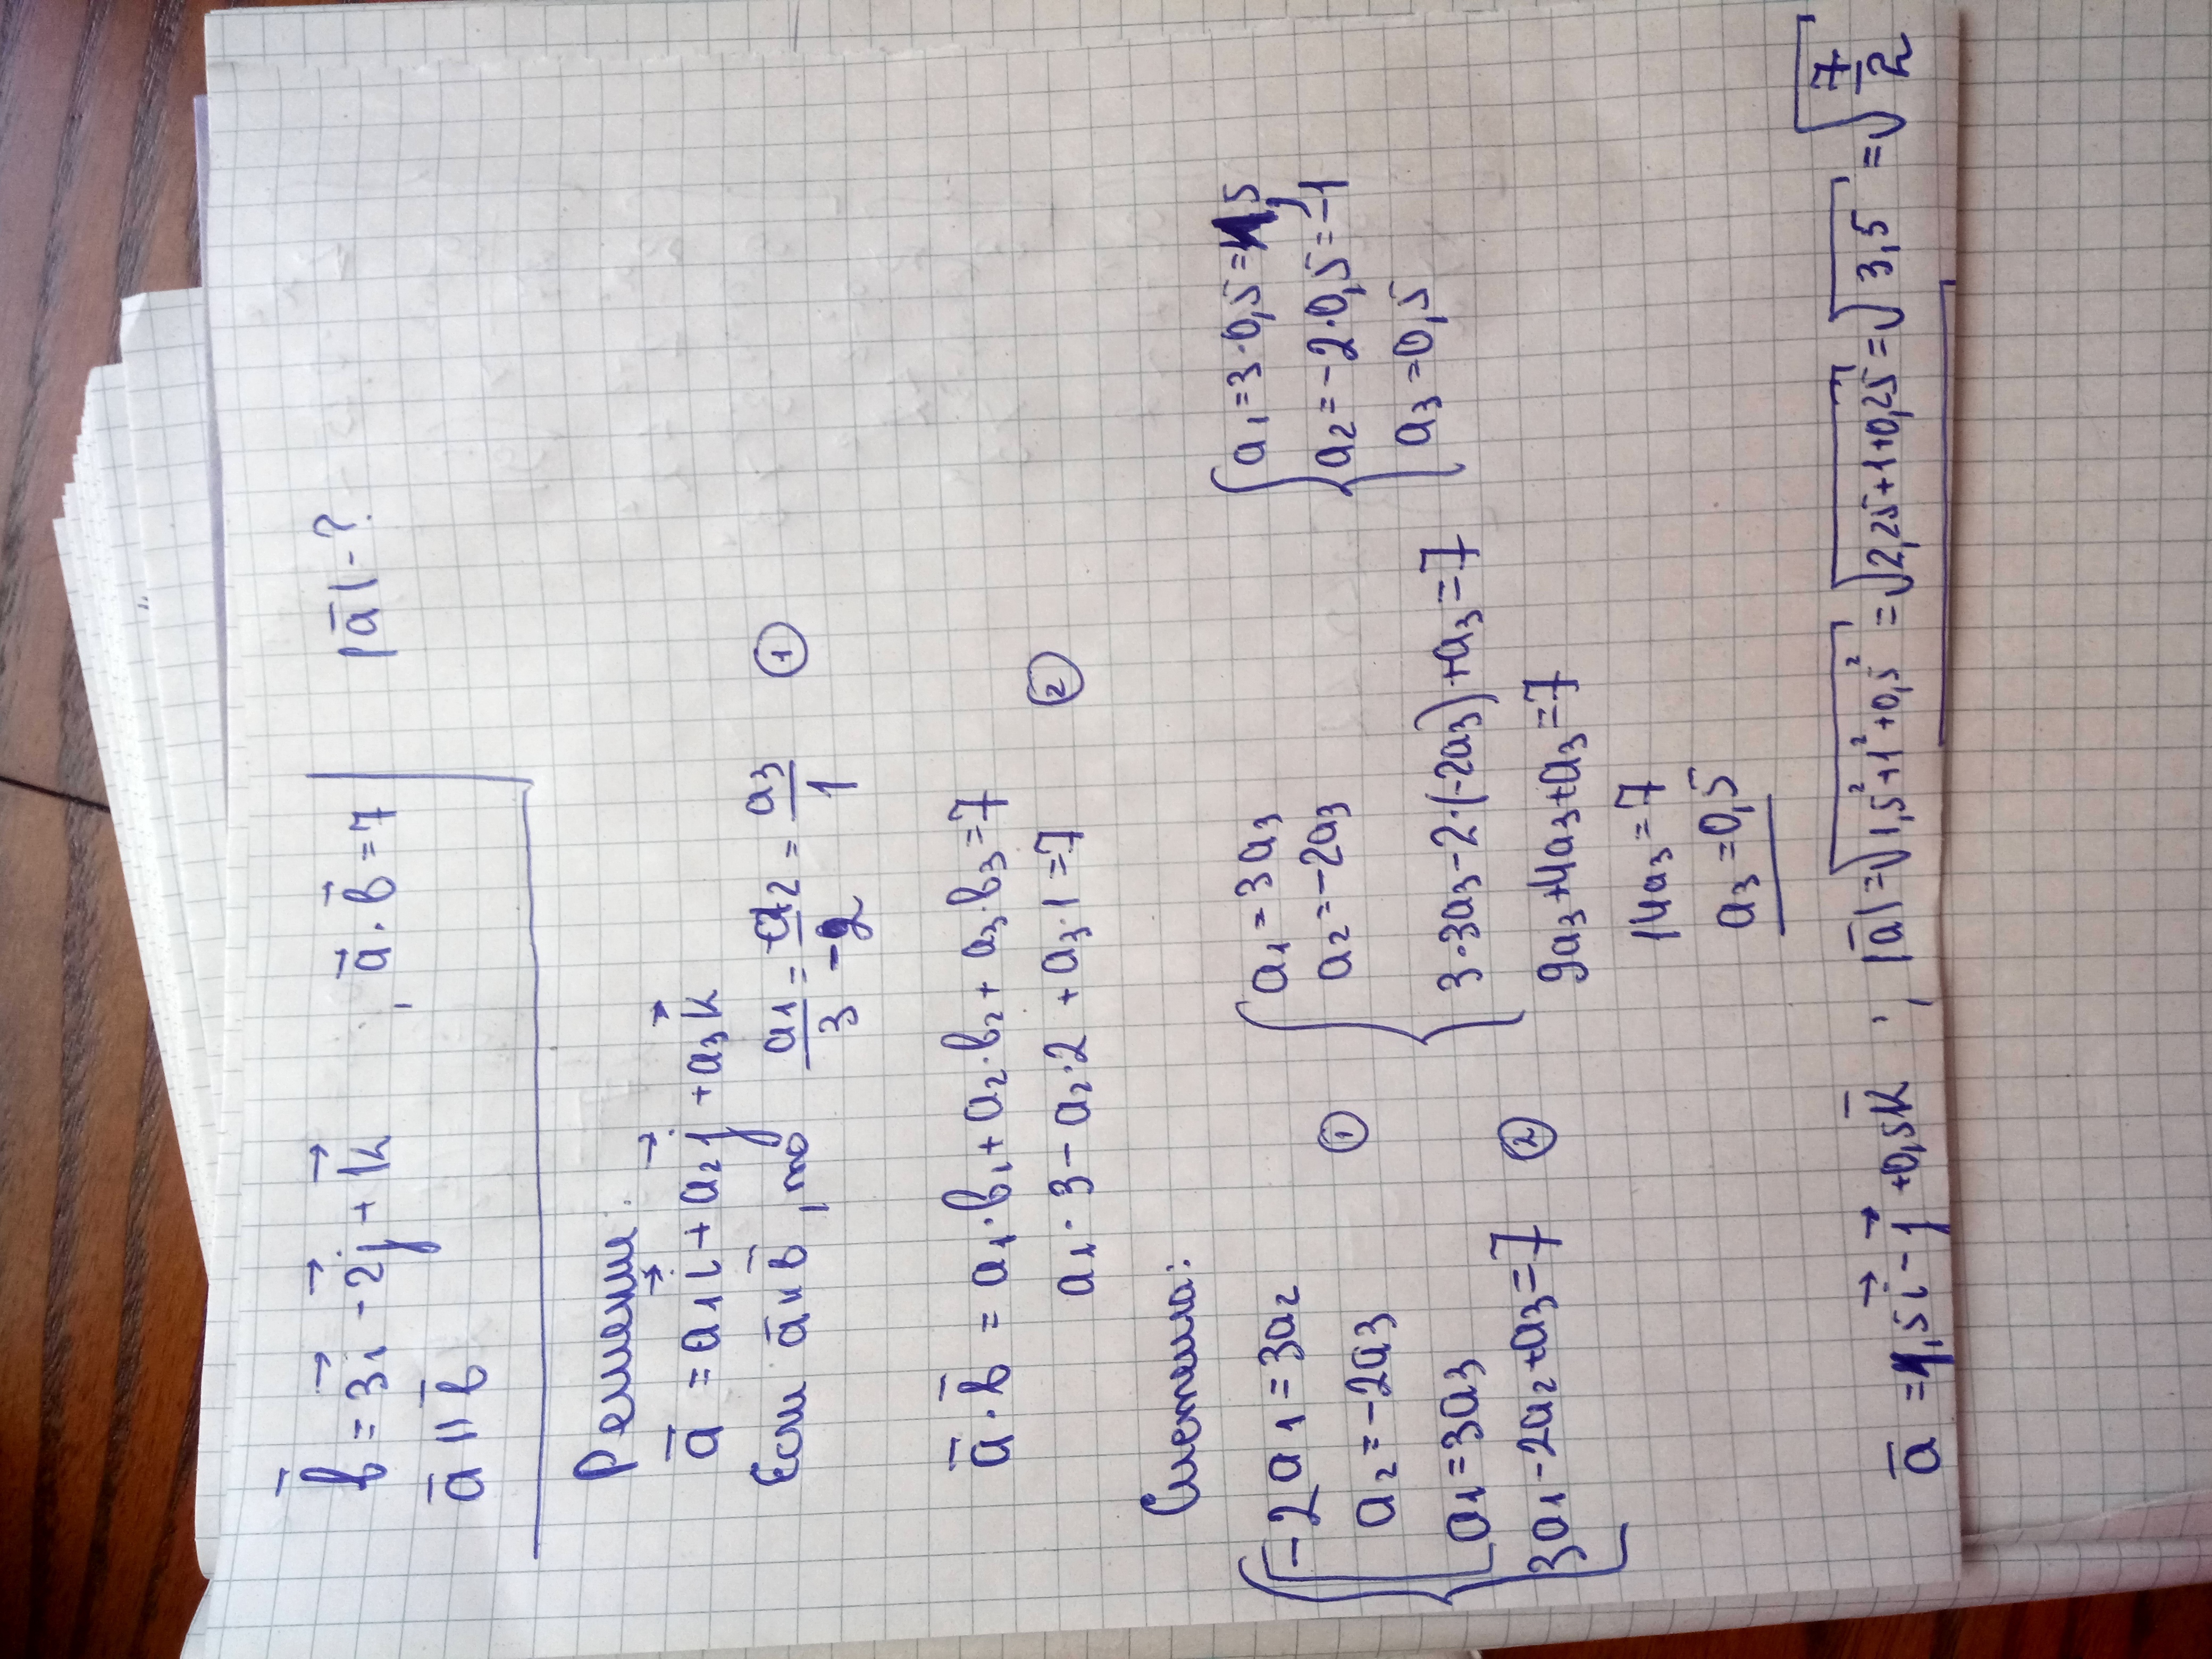 b̄ = 3i⃗ - 2j⃗ + k⃗ , ā · b̄ = 7 |ā| - ?
ā || b̄
Решение:
ā = a₁i⃗ + a₂j⃗ + a₃k⃗
Если ā || b̄, то a₁/3 = a₂/-2 = a₃/1 ①
ā · b̄ = a₁·b₁ + a₂·b₂ + a₃·b₃ = 7
a₁·3 - a₂·2 + a₃·1 = 7 ②
Система:
-2a₁ = 3a₂
a₂ = -2a₃ ①
a₁ = 3a₃
3a₁ - 2a₂ + a₃ = 7 ②
a₁ = 3a₃
a₂ = -2a₃
3·3a₃ - 2·(-2a₃) + a₃ = 7
9a₃ + 4a₃ + a₃ = 7
14a₃ = 7
a₃ = 0,5
a₁ = 3·0,5 = 1,5
a₂ = -2·0,5 = -1
a₃ = 0,5
ā = 1,5i⃗ - j⃗ + 0,5k̄ ; |ā| = √(1,5² + 1² + 0,5²) = √(2,25 + 1 + 0,25) = √3,5 = √(7/2)